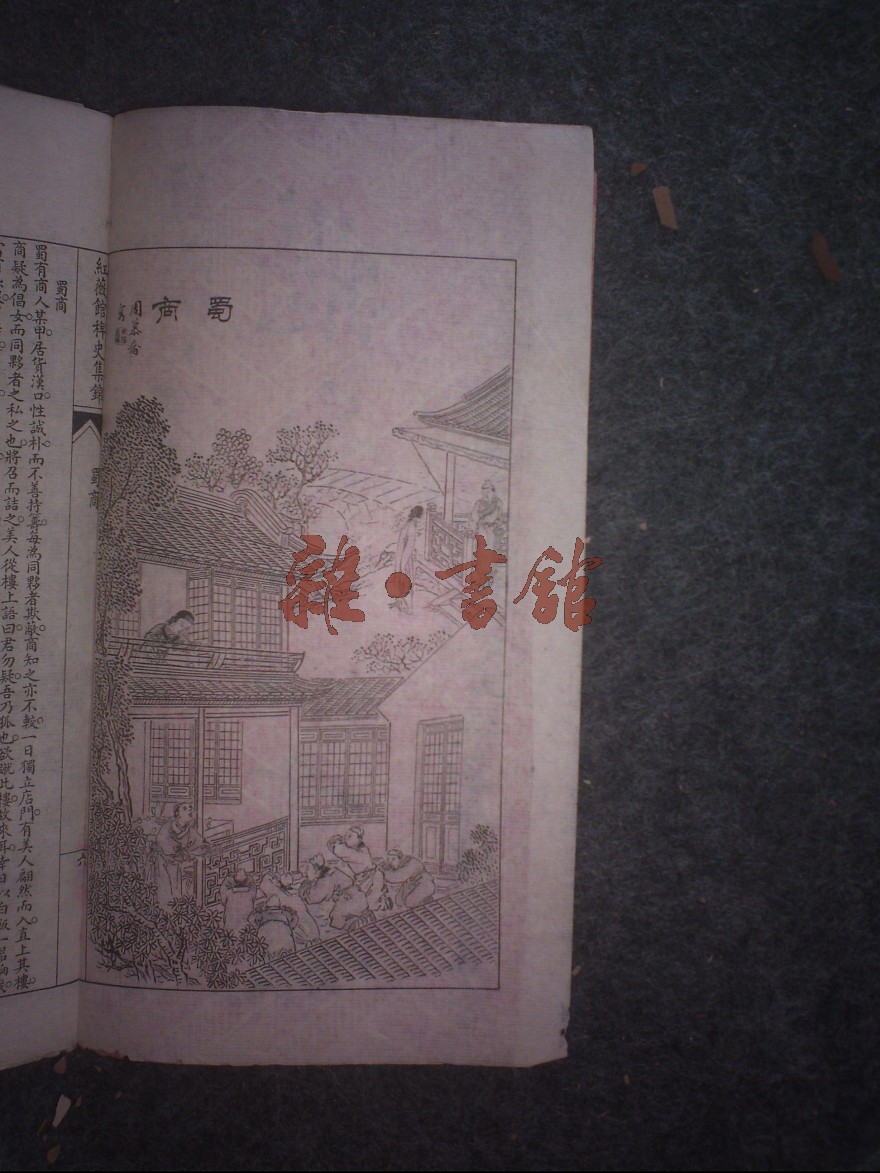 蜀商
周慕喬
紅薇館稗史集錦
蜀商
六
蜀商
蜀有商人某甲居貨漢口性誠朴而不善持籌每為同夥者欺蔽商知之亦不較一日獨立店門有美人翩然而入直上其樓
商疑為倡女而同夥者之私之也將召而詰之美人從樓上語曰君勿疑吾乃狐也欲就此樓故來耳
雜·書館